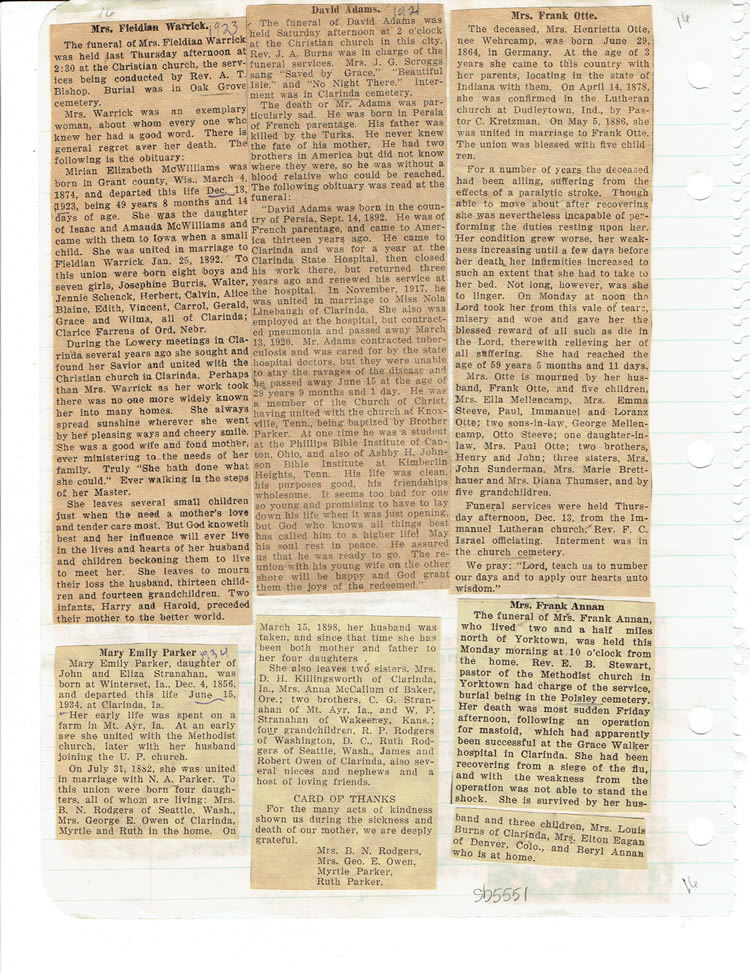 16
16
Mrs. Fieldian Warrick. 1923
The funeral of Mrs. Fieldian Warrick
was held last Thursday afternoon at
2:30 at the Christian church, the serv-
ices being conducted by Rev. A. T.
Bishop. Burial was in Oak Grove
cemetery.
Mrs. Warrick was an exemplary
woman, about whom every one who
knew her had a good word. There is
general regret aver her death. The
following is the obituary:
Mirian Elizabeth McWilliams was
born in Grant county, Wis., March 4,
1874, and departed this life Dec. 18,
1923, being 49 years 8 months and 14
days of age. She was the daughter
of Isaac and Amanda McWilliams and
came with them to Iowa when a small
child. She was united in marriage to
Fieldian Warrick Jan. 25, 1892. To
this union were born eight boys and
seven girls, Josephine Burris, Walter,
Jennie Schenck, Herbert, Calvin, Alice
Blaine, Edith, Vincent, Carrol, Gerald,
Grace and Wilma, all of Clarinda;
Clarice Farrens of Ord, Nebr.
During the Lowery meetings in Cla-
rinda several years ago she sought and
found her Savior and united with the
Christian church in Clarinda. Perhaps
than Mrs. Warrick as her work took
there was no one more widely known
her into many homes. She always
spread sunshine wherever she went
by her pleasing ways and cheery smile.
She was a good wife and fond mother,
ever ministering to the needs of her
family. Truly "She hath done what
she could." Ever walking in the steps
of her Master.
She leaves several small children
just when the need a mother's love
and tender care most. But God knoweth
best and her influence will ever live
in the lives and hearts of her husband
and children beckoning them to live
to meet her. She leaves to mourn
their loss the husband, thirteen child-
ren and fourteen grandchildren. Two
infants, Harry and Harold, preceded
their mother to the better world.
David Adams. 1921
The funeral of David Adams was
held Saturday afternoon at 2 o'clock
at the Christian church in this city.
Rev. J. A. Burns was in charge of the
funeral services. Mrs. J. G. Scroggs
sang "Saved by Grace," "Beautiful
Isle," and "No Night There." Inter-
ment was in Clarinda cemetery.
The death or Mr. Adams was par-
ticularly sad. He was born in Persia
of French parentage. His father was
killed by the Turks. He never knew
the fate of his mother. He had two
brothers in America but did not know
where they were, so he was without a
blood relative who could be reached.
The following obituary was read at the
funeral:
"David Adams was born in the coun-
try of Persia, Sept. 14, 1892. He was of
French parentage, and came to Amer-
ica thirteen years ago. He came to
Clarinda and was for a year at the
Clarinda State Hospital, then closed
his work there, but returned three
years ago and renewed his service at
the hospital. In November, 1917, he
was united in marriage to Miss Nola
Linebaugh of Clarinda. She also was
employed at the hospital, but contract-
ed pneumonia and passed away March
13, 1920. Mr. Adams contracted tuber-
culosis and was cared for by the state
hospital doctors, but they were unable
to stay the ravages of the disease and
he passed away June 15 at the age of
29 years 9 months and 1 day. He was
a member of the Church of Christ,
having united with the church at Knox-
ville, Tenn., being baptized by Brother
Parker. At one time he was a student
at the Phillips Bible Institute of Can-
ton, Ohio, and also of Ashby H. John-
son Bible Institute at Kimberlin
Heights, Tenn. His life was clean,
his purposes good, his friendships
wholesome. It seems too bad for one
so young and promising to have to lay
down his life when it was just opening,
but God who knows all things best
has called him to a higher life! May
his soul rest in peace. He assured
us that he was ready to go. The re-
union with his young wife on the other
shore will be happy and God grant
them the joys of the redeemed."
Mrs. Frank Otte.
The deceased, Mrs. Henrietta Otte,
nee Wehrcamp, was born June 29,
1864, in Germany. At the age of 3
years she came to this country with
her parents, locating in the state of
Indiana with them. On April 14, 1878,
she was confirmed in the Lutheran
church at Dudleytown, Ind., by Pas-
tor C. Kretzman. On May 5, 1886, she
was united in marriage to Frank Otte.
The union was blessed with five child
ren.
For a number of years the deceased
had been ailing, suffering from the
effects of a paralytic stroke. Though
able to move about after recovering
she was nevertheless incapable of per-
forming the duties resting upon her.
Her condition grew worse, her weak-
ness increasing until a few days before
her death her infirmities increased to
such an extent that she had to take to
her bed. Not long, however, was she
to linger. On Monday at noon the
Lord took her from this vale of tears,
misery and woe and gave her the
blessed reward of all such as die in
the Lord, therewith relieving her of
all suffering. She had reached the
age of 59 years 5 months and 11 days.
Mrs. Otte is mourned by her hus-
band, Frank Otte, and five children,
Mrs. Ella Mellencamp, Mrs. Emma
Steeve, Paul, Immanuel and Loranz
Otte; two sons-in-law, George Mellen-
camp, Otto Steeve; one daughter-in-
law, Mrs. Paul Otte; two brothers,
Henry and John; three sisters, Mrs.
John Sunderman, Mrs. Marie Brett-
hauer and Mrs. Diana Thumser, and by
five grandchildren.
Funeral services were held Thurs-
day afternoon, Dec. 13, from the Im-
manuel Lutheran church, Rev. F. C.
Israel officiating. Interment was in
the church cemetery.
We pray: "Lord, teach us to number
our days and to apply our hearts unto
wisdom."
Mary Emily Parker 1934
Mary Emily Parker, daughter of
John and Eliza Stranahan, was
born at Winterset, Ia., Dec. 4, 1856,
and departed this life June 15,
1934, at Clarinda, Ia.
Her early life was spent on a
farm in Mt. Ayr, Ia. At an early
age she united with the Methodist
church, later with her husband
joining the U. P. church.
On July 31, 1882, she was united
in marriage with N. A. Parker. To
this union were born four daugh-
ters, all of whom are living: Mrs.
B. N. Rodgers of Seattle, Wash.,
Mrs. George E. Owen of Clarinda,
Myrtle and Ruth in the home. On
March 15, 1898, her husband was
taken, and since that time she has
been both mother and father to
her four daughters.
She also leaves two sisters, Mrs.
D. H. Killingsworth of Clarinda,
Ia., Mrs. Anna McCallum of Baker,
Ore.; two brothers, C. G. Stran-
ahan of Mt. Ayr, Ia., and W. F.
Stranahan of Wakeeney, Kans.;
four grandchildren, R. P. Rodgers
of Washington, D. C., Ruth Rod-
gers of Seattle, Wash., James and
Robert Owen of Clarinda, also sev-
eral nieces and nephews and a
host of loving friends.
CARD OF THANKS
For the many acts of kindness
shown us during the sickness and
death of our mother, we are deeply
grateful.
Mrs. B. N. Rodgers,
Mrs. Geo. E. Owen,
Myrtle Parker,
Ruth Parker.
Mrs. Frank Annan
The funeral of Mrs. Frank Annan,
who lived two and a half miles
north of Yorktown, was held this
Monday morning at 10 o'clock from
the home. Rev. E. B. Stewart,
pastor of the Methodist church in
Yorktown had charge of the service,
burial being in the Polsley cemetery.
Her death was most sudden Friday
afternoon, following an operation
for mastoid, which had apparently
been successful at the Grace Walker
hospital in Clarinda. She had been
recovering from a siege of the flu,
and with the weakness from the
operation was not able to stand the
shock. She is survived by her hus-
band and three children, Mrs. Louis
Burns of Clarinda, Mrs. Elton Eagan
of Denver, Colo., and Beryl Annan
who is at home.
sb5551
16